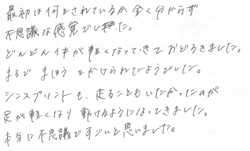 最初は何をされているか全く分からず
不思議な感覚でした。
どんどん体が軽くなってきておどろきました。
まるで まほう をかけられているようでした。
シンスプリントも、走ることもいたかったのが
足が軽くなり 動けるようになってきました。
本当に不思議ですごいと思いました。